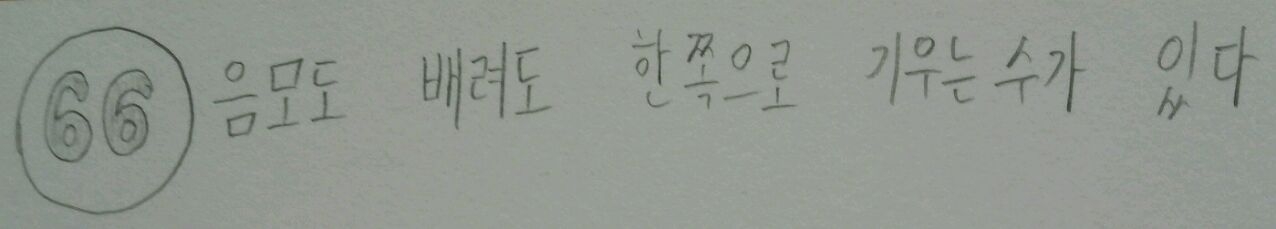 66 음모도 배려도 한쪽으로 기우는 수가 있다